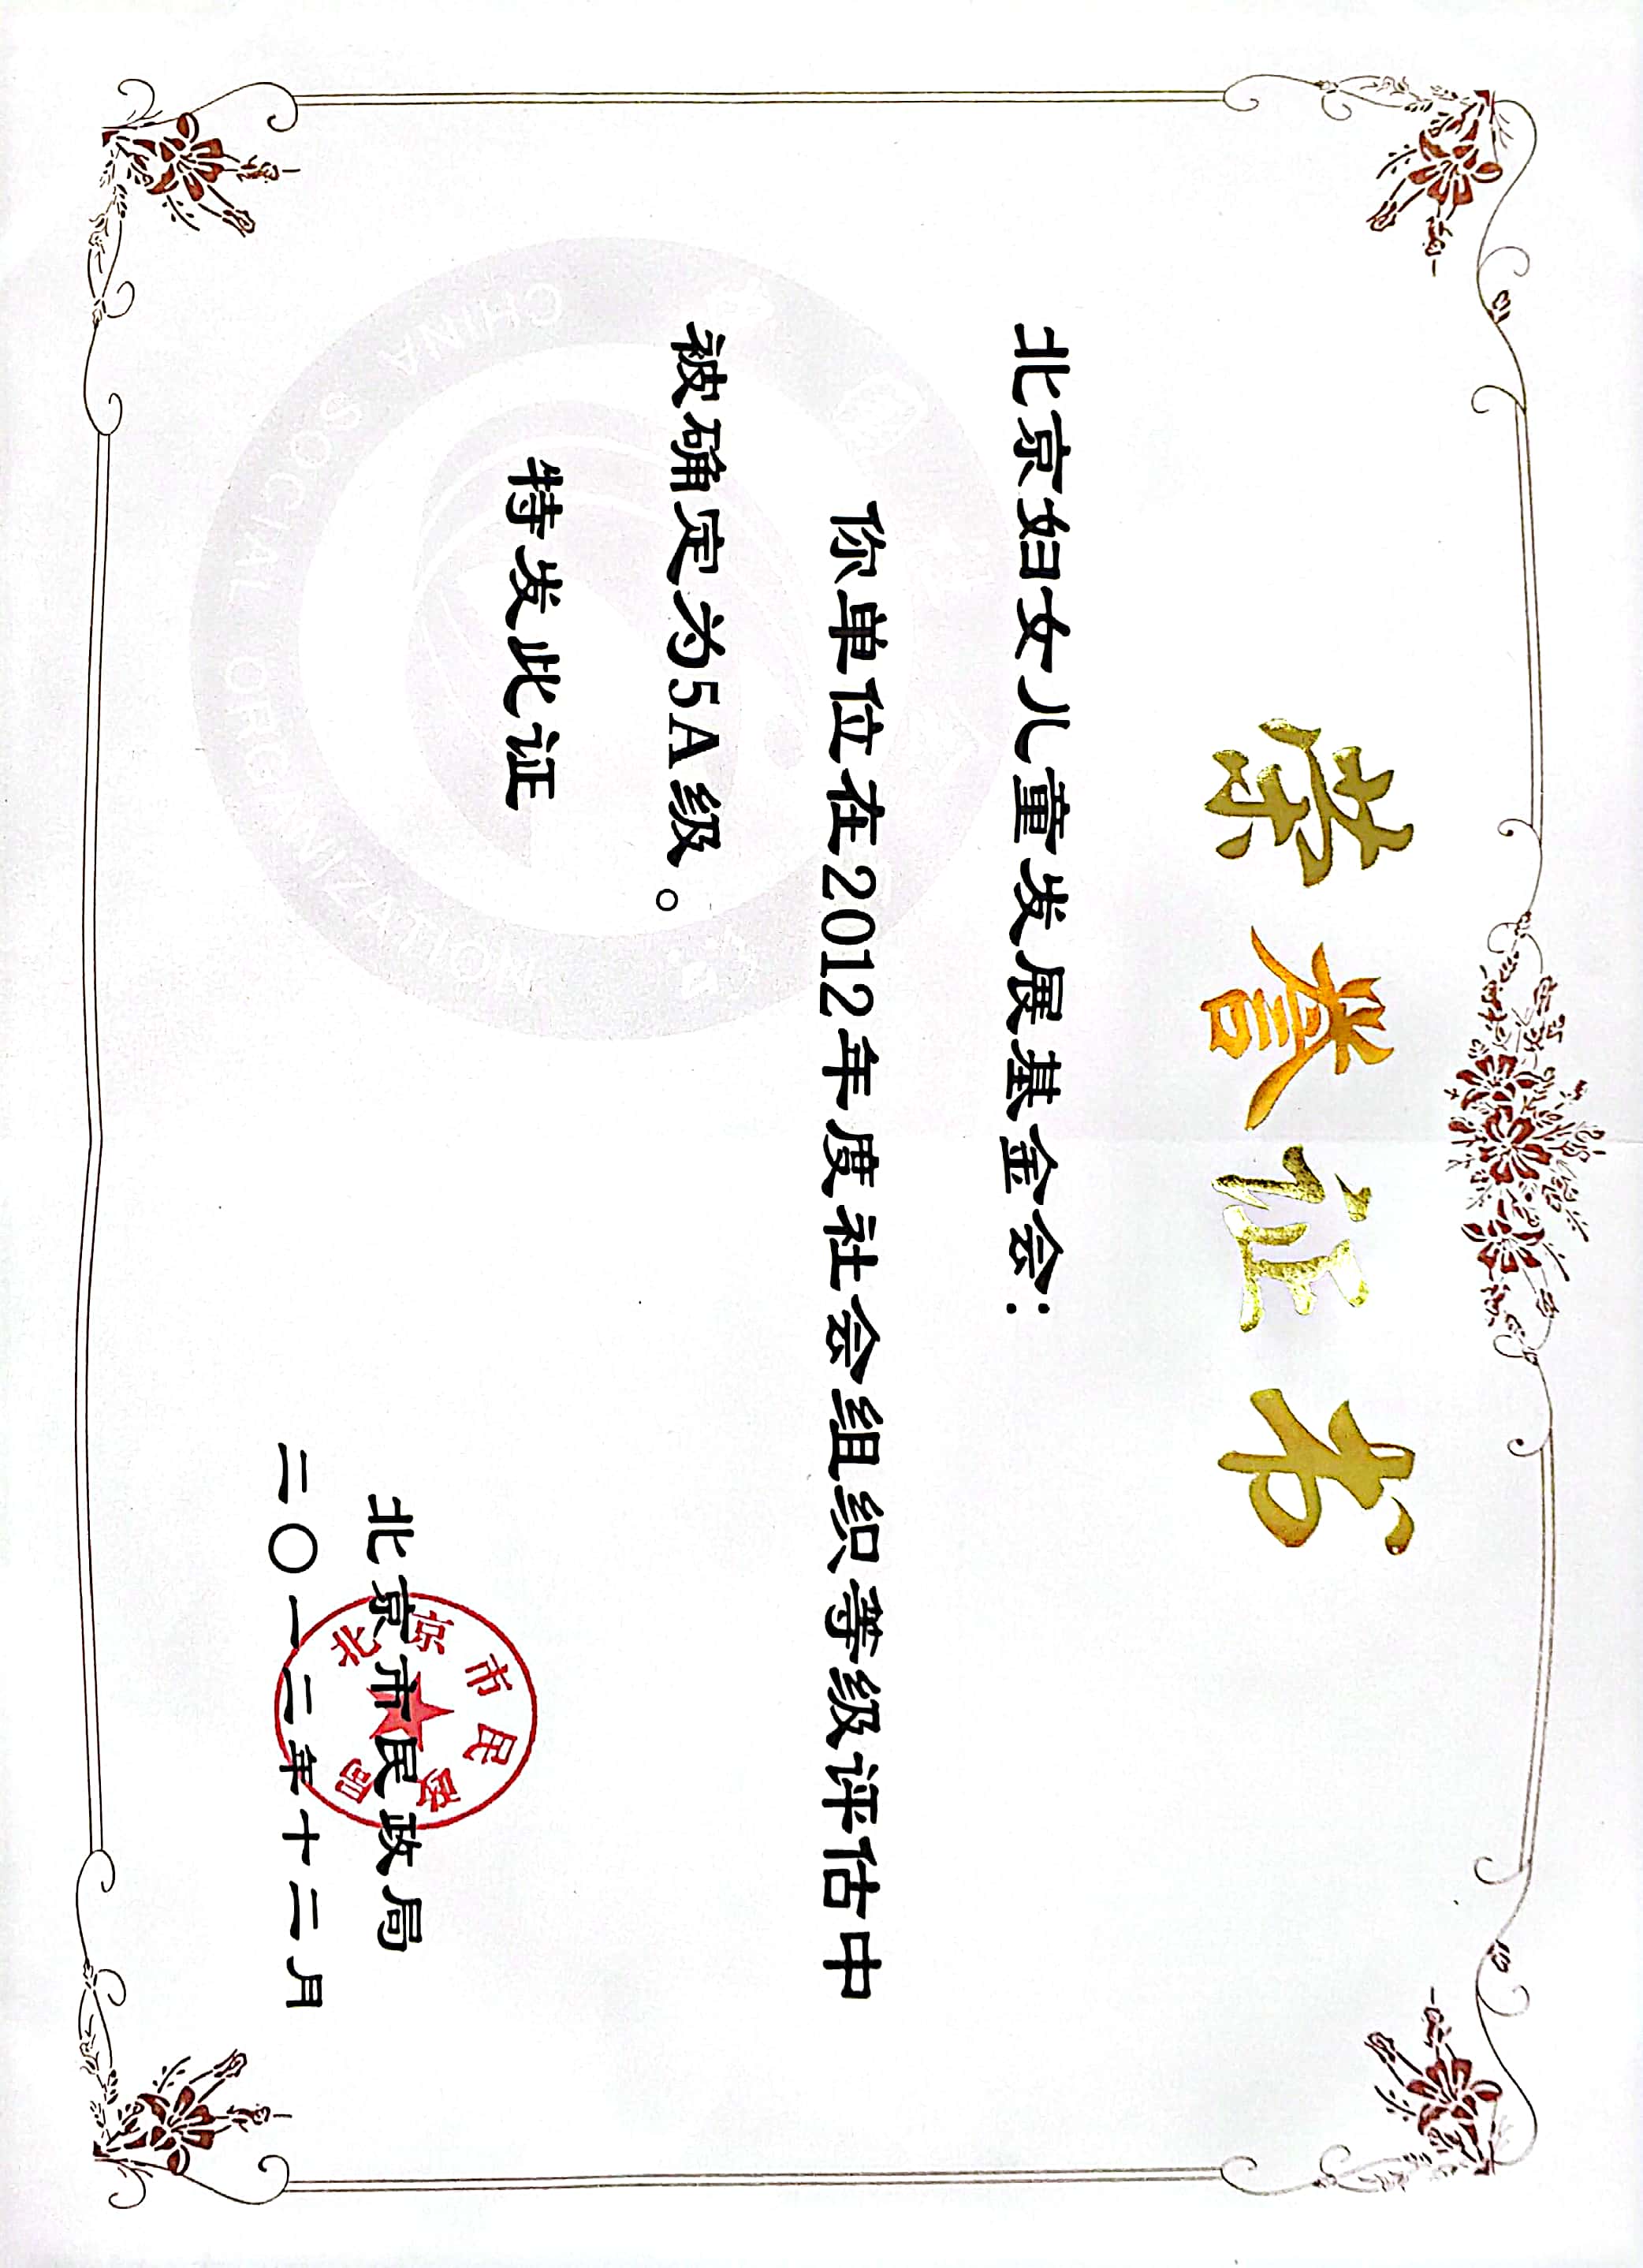 荣誉证书
北京妇女儿童发展基金会：
你单位在2012年度社会组织等级评估中
被确定为5A级。
特发此证
北京市民政局
二〇一二年十二月
北京市民政局
CHINA SOCIAL ORGANIZATION